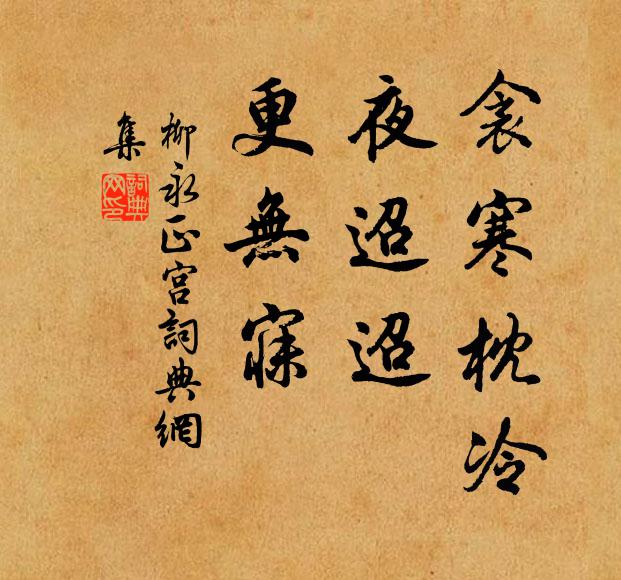 衾寒枕冷
夜迢迢
更無寐
柳永正宮詞典網
集
詞典
网印